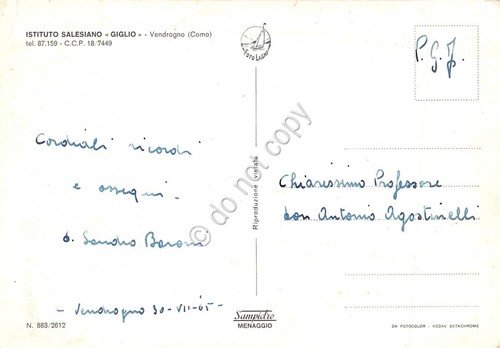 ISTITUTO SALESIANO « GIGLIO » - Vendrogno (Como)
tel. 87.159 - C.C.P. 18/7449
FOTO LARIO
P.G.J.
Cordiali ricordi
e ossequi.
d. Sandro Baroni
- Vendrogno 30-VII-65 -
Riproduzione vietata
© do not copy
Chiarissimo Professore
don Antonio Agostinelli
N. 883/2612
Sampietro
MENAGGIO
DA FOTOCOLOR - KODAK EKTACHROME